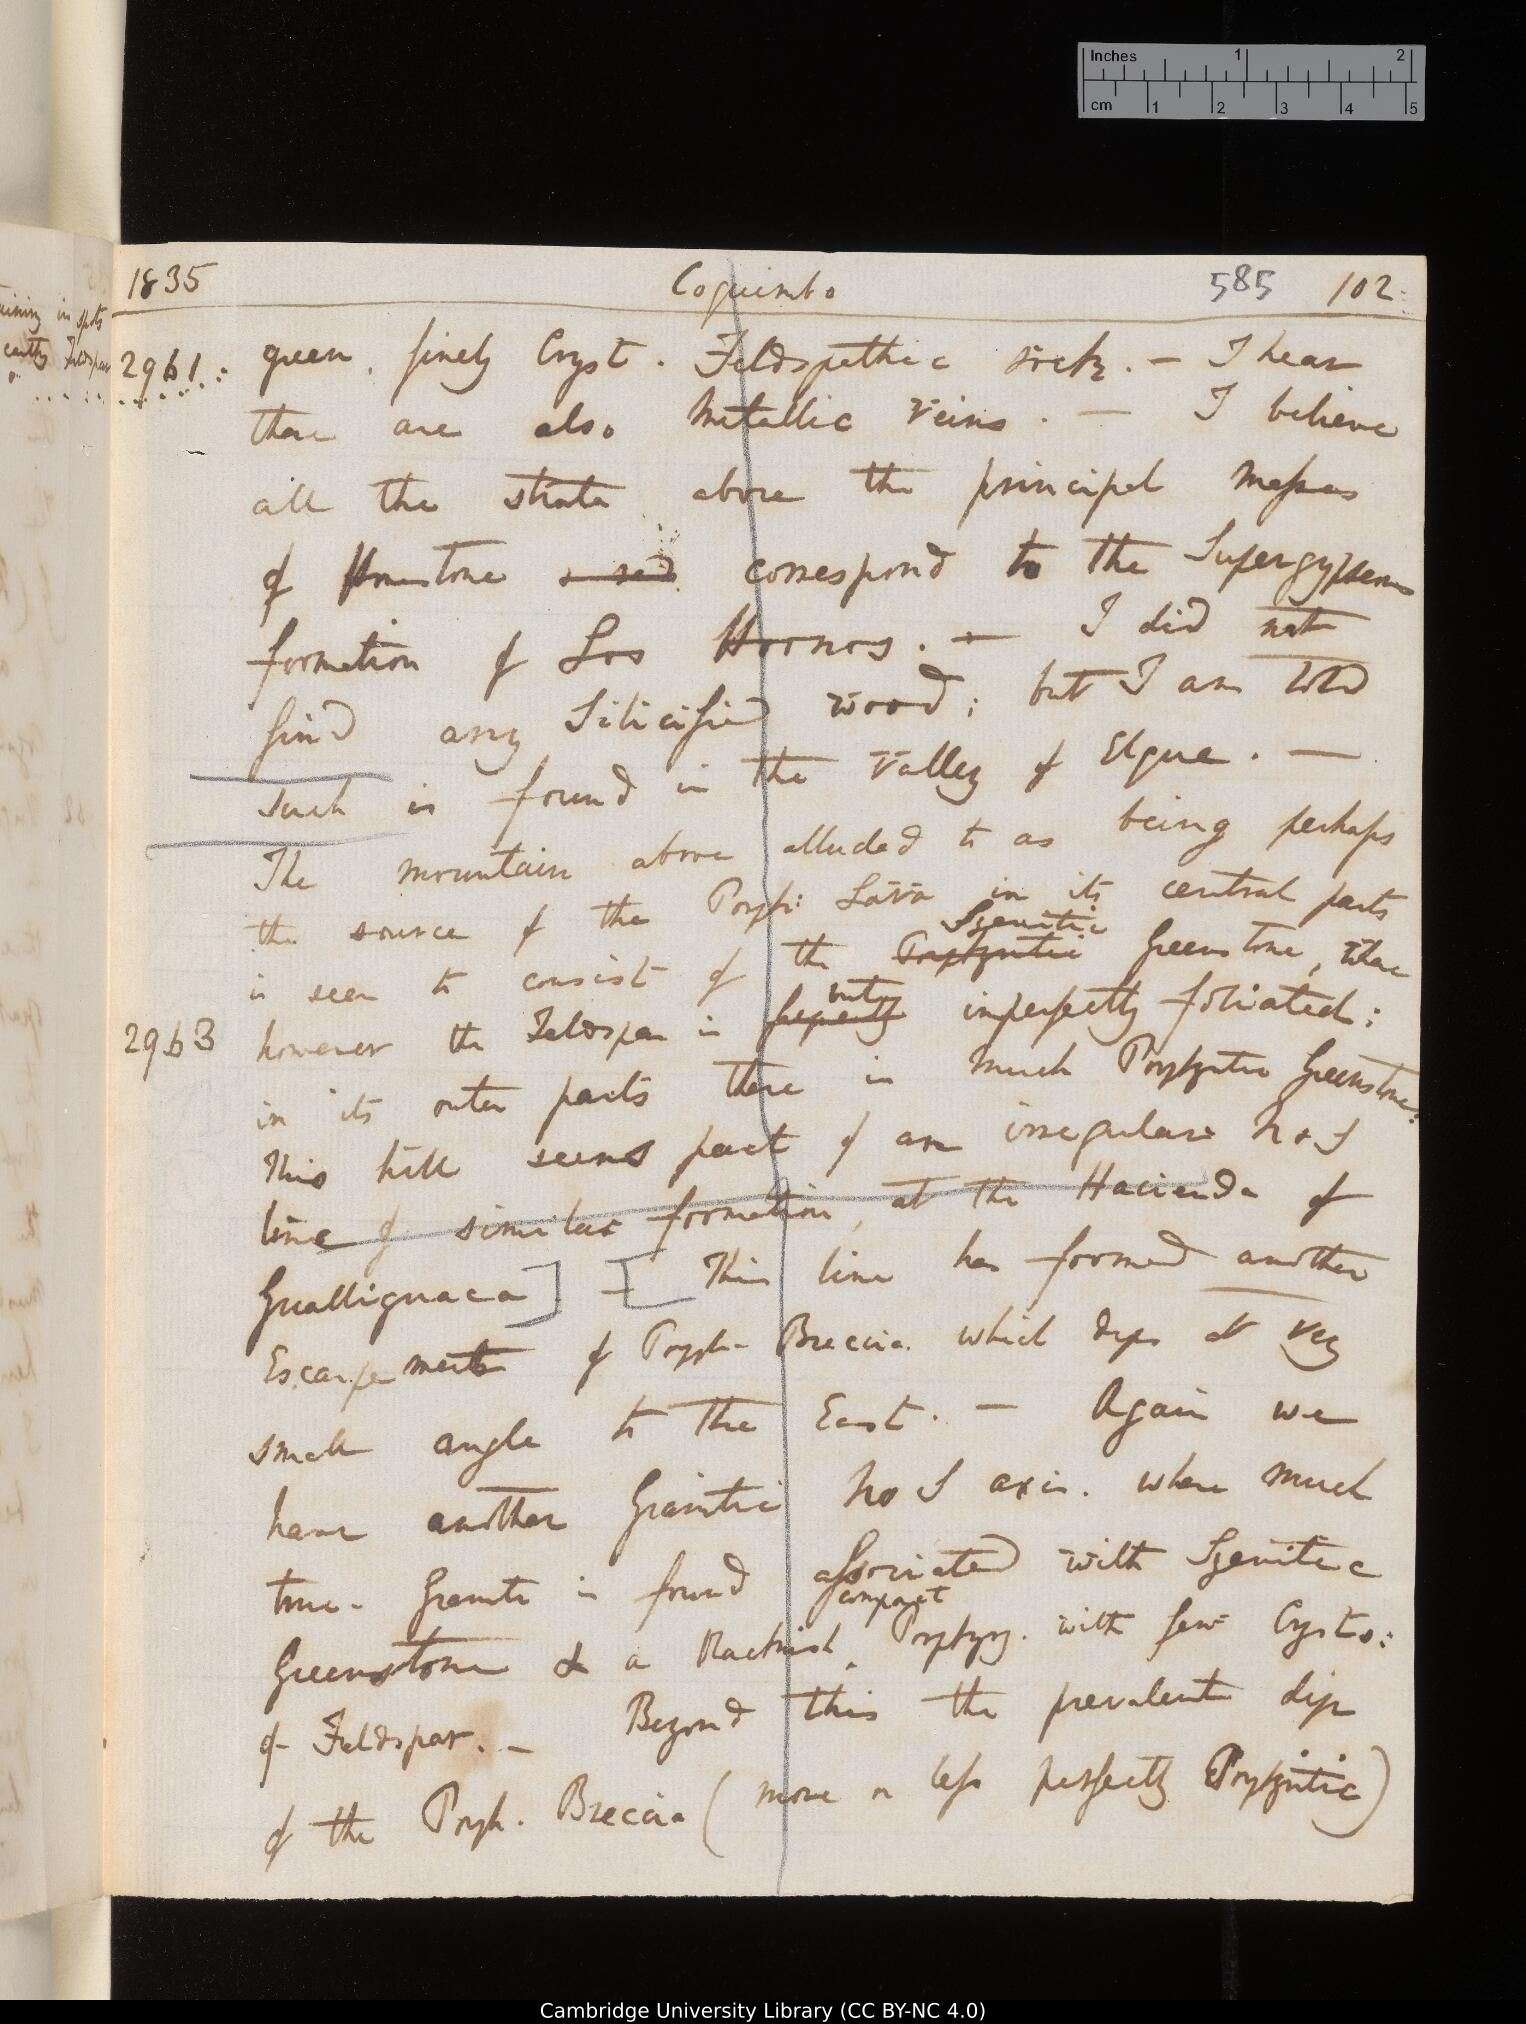 Inches 1 2
cm 1 2 3 4 5
1835 Coquimbo 585 102
2961 green, finely Cryst. Feldspathic rock. — I hear
there are also Metallic veins. — I believe
all the strata above the principal masses
of correspond to the Supergypseous
formation of Los Hornos. — I did not
find any Silicified wood; but I am told
such is found in the valley of Elque. —
The mountain above alluded to as being perhaps
the source of the Porph: Lava in its central parts
Syenitic
is seen to consist of the Porphyritic Greenstone,
2963 however the Feldspar is imperfectly foliated:
in its outer parts there is much Porphyritic Greenstone.
This hill seems part of an irregular N & S
line of similar formation, at the Hacienda of
Gualliguaca] — [This line has formed another
Escarpement of Porph- Breccia. which dips at very
small angle to the East. — Again we
have another Granitic N & S axis. where much
true. Granite is found associated with Syenitic
compact
Greenstone & a Porphyry. with few Crysts:
of Feldspar. — Beyond this the prevalent dip
of the Porph. Breccia (more or less perfectly Porphyritic)
Cambridge University Library (CC BY-NC 4.0)